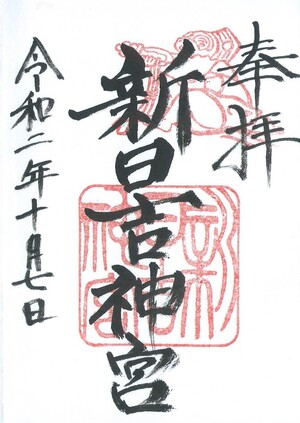 奉拝
新日吉神宮
令和二年十月七日